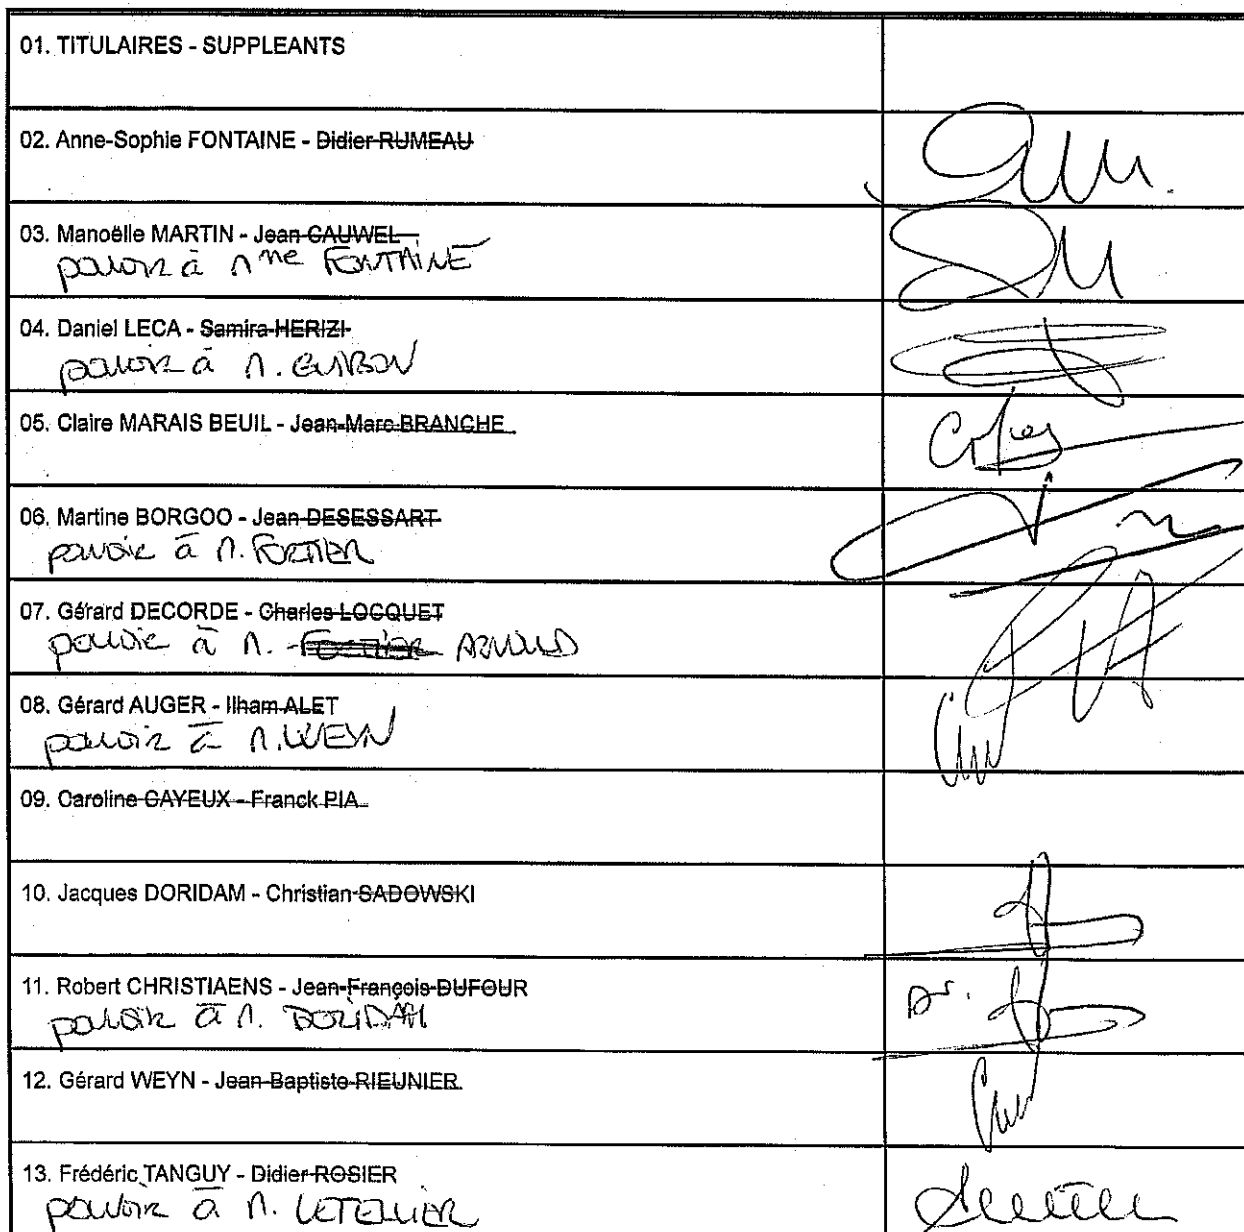 01. TITULAIRES - SUPPLEANTS
02. Anne-Sophie FONTAINE - Didier RUMEAU
03. Manoëlle MARTIN - Jean CAUWEL
pouvoir à Mme FONTAINE
04. Daniel LECA - Samira HERIZI
pouvoir à M.
05. Claire MARAIS BEUIL - Jean-Marc BRANCHE
06. Martine BORGOO - Jean DESESSART
pouvoir à M. FORTIER
07. Gérard DECORDE - Charles LOCQUET
pouvoir à M. FORTIER ARNOULD
08. Gérard AUGER - Ilham ALET
pouvoir à M. WEYN
09. Caroline CAYEUX - Franck PIA
10. Jacques DORIDAM - Christian SADOWSKI
11. Robert CHRISTIAENS - Jean-François DUFOUR
pouvoir à M. DORIDAM
12. Gérard WEYN - Jean-Baptiste RIEUNIER
13. Frédéric TANGUY - Didier ROSIER
pouvoir à M. LETELLIER